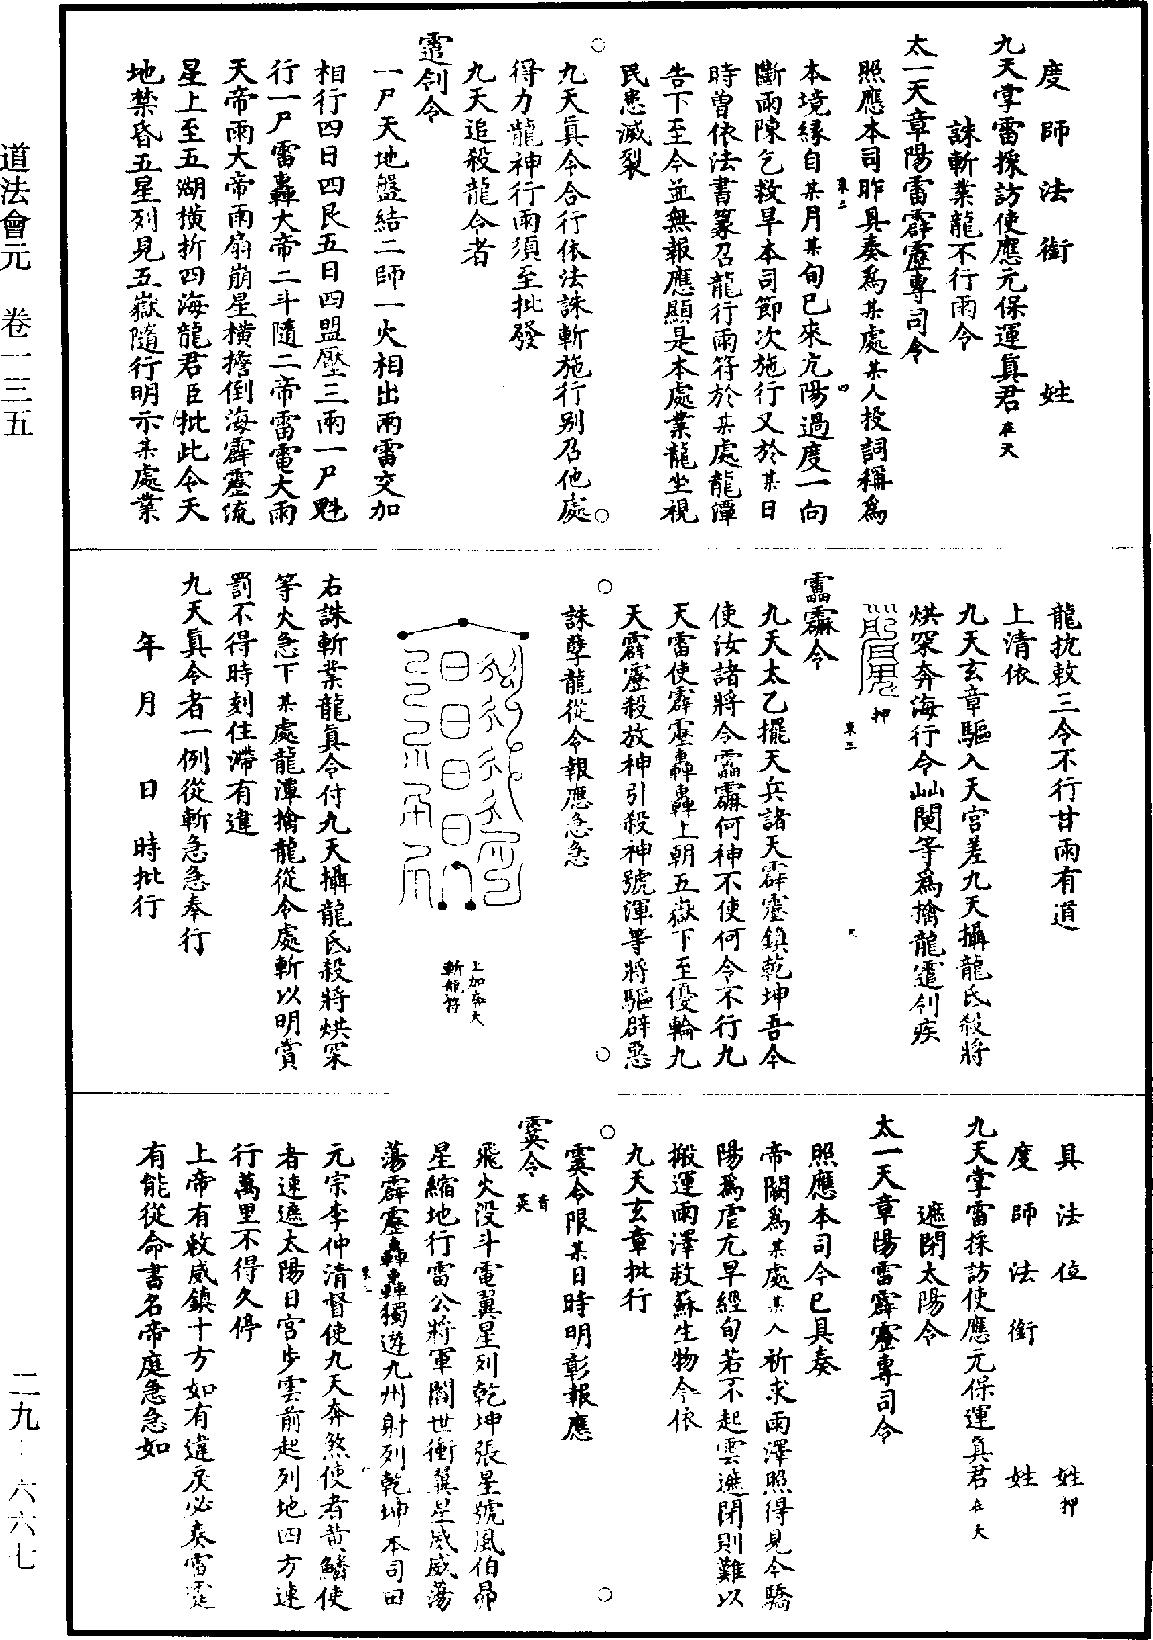 道法會元　卷一三五
二九—六六七
度師法銜　姓
九天掌雷採訪使應元保運真君在天
誅斬業龍不行雨令
太一天章陽雷霹靂專司令
照應本司昨具奏為某處某人投詞稱為
本境緣自某月某旬已來亢陽過度一向
斷雨陳乞救旱本司節次施行又於某日
時曾依法書篆召龍行雨符於某處龍潭
告下至今並無報應顯是本處業龍坐視
民患滅裂
九天真令合行依法誅斬施行別召他處
得力龍神行雨須至批發
九天追殺龍令者
令
一尸天地盤結二師一火相出雨雷交加
相行四日四艮五日四盟壓三雨一尸魁
行一尸雷轟大帝二斗隨二帝雷電大雨
天帝雨大帝雨扇崩星橫擔倒海霹靂流
星上至五湖橫折四海龍君臣批此令天
地禁昏五星列見五嶽隨行明示某處業
龍抗敕三令不行甘雨有道
上清依
九天玄章驅入天宮差九天攝龍氐殺將
烘罙奔海行令閿等為擒龍疾
押
令
九天太乙擺天兵諸天霹靂鎮乾坤吾令
使汝諸將令何神不使何令不行九
天雷使霹靂轟轟上朝五嶽下至優輪九
天霹靂殺放神引殺神號渾等將驅辟惡
誅孽龍從令報應急急
上加奉天
斬龍符
右誅斬業龍真令付九天攝龍氐殺將烘罙
等火急下某處龍潭擒龍從令處斬以明賞
罰不得時刻住滯有違
九天真令者一例從斬急急奉行
年　月　日　時批行
具法位　姓押
度師法銜　姓
九天掌雷採訪使應元保運真君在天
遮閉太陽令
太一天章陽雷霹靂專司令
照應本司今已具奏
帝闕為某處某人祈求雨澤照得見今驕
陽為虐亢旱經旬若不起雲遮閉則難以
搬運雨澤救蘇生物今依
九天玄章批行
霙令限某日時明彰報應
霙令音英
飛火沒斗電翼星列乾坤張星號風伯昴
星縮地行雷公將軍閻世衝翼星威威蕩
蕩霹靂轟轟獨遊九州射列乾坤本司田
元宗李仲清督使九天奔煞使者黃鱗使
者速遮太陽日宮步雲前起列地四方速
行萬里不得久停
上帝有敕威鎮十方如有違戾必奏雷霆
有能從命書名帝庭急急如